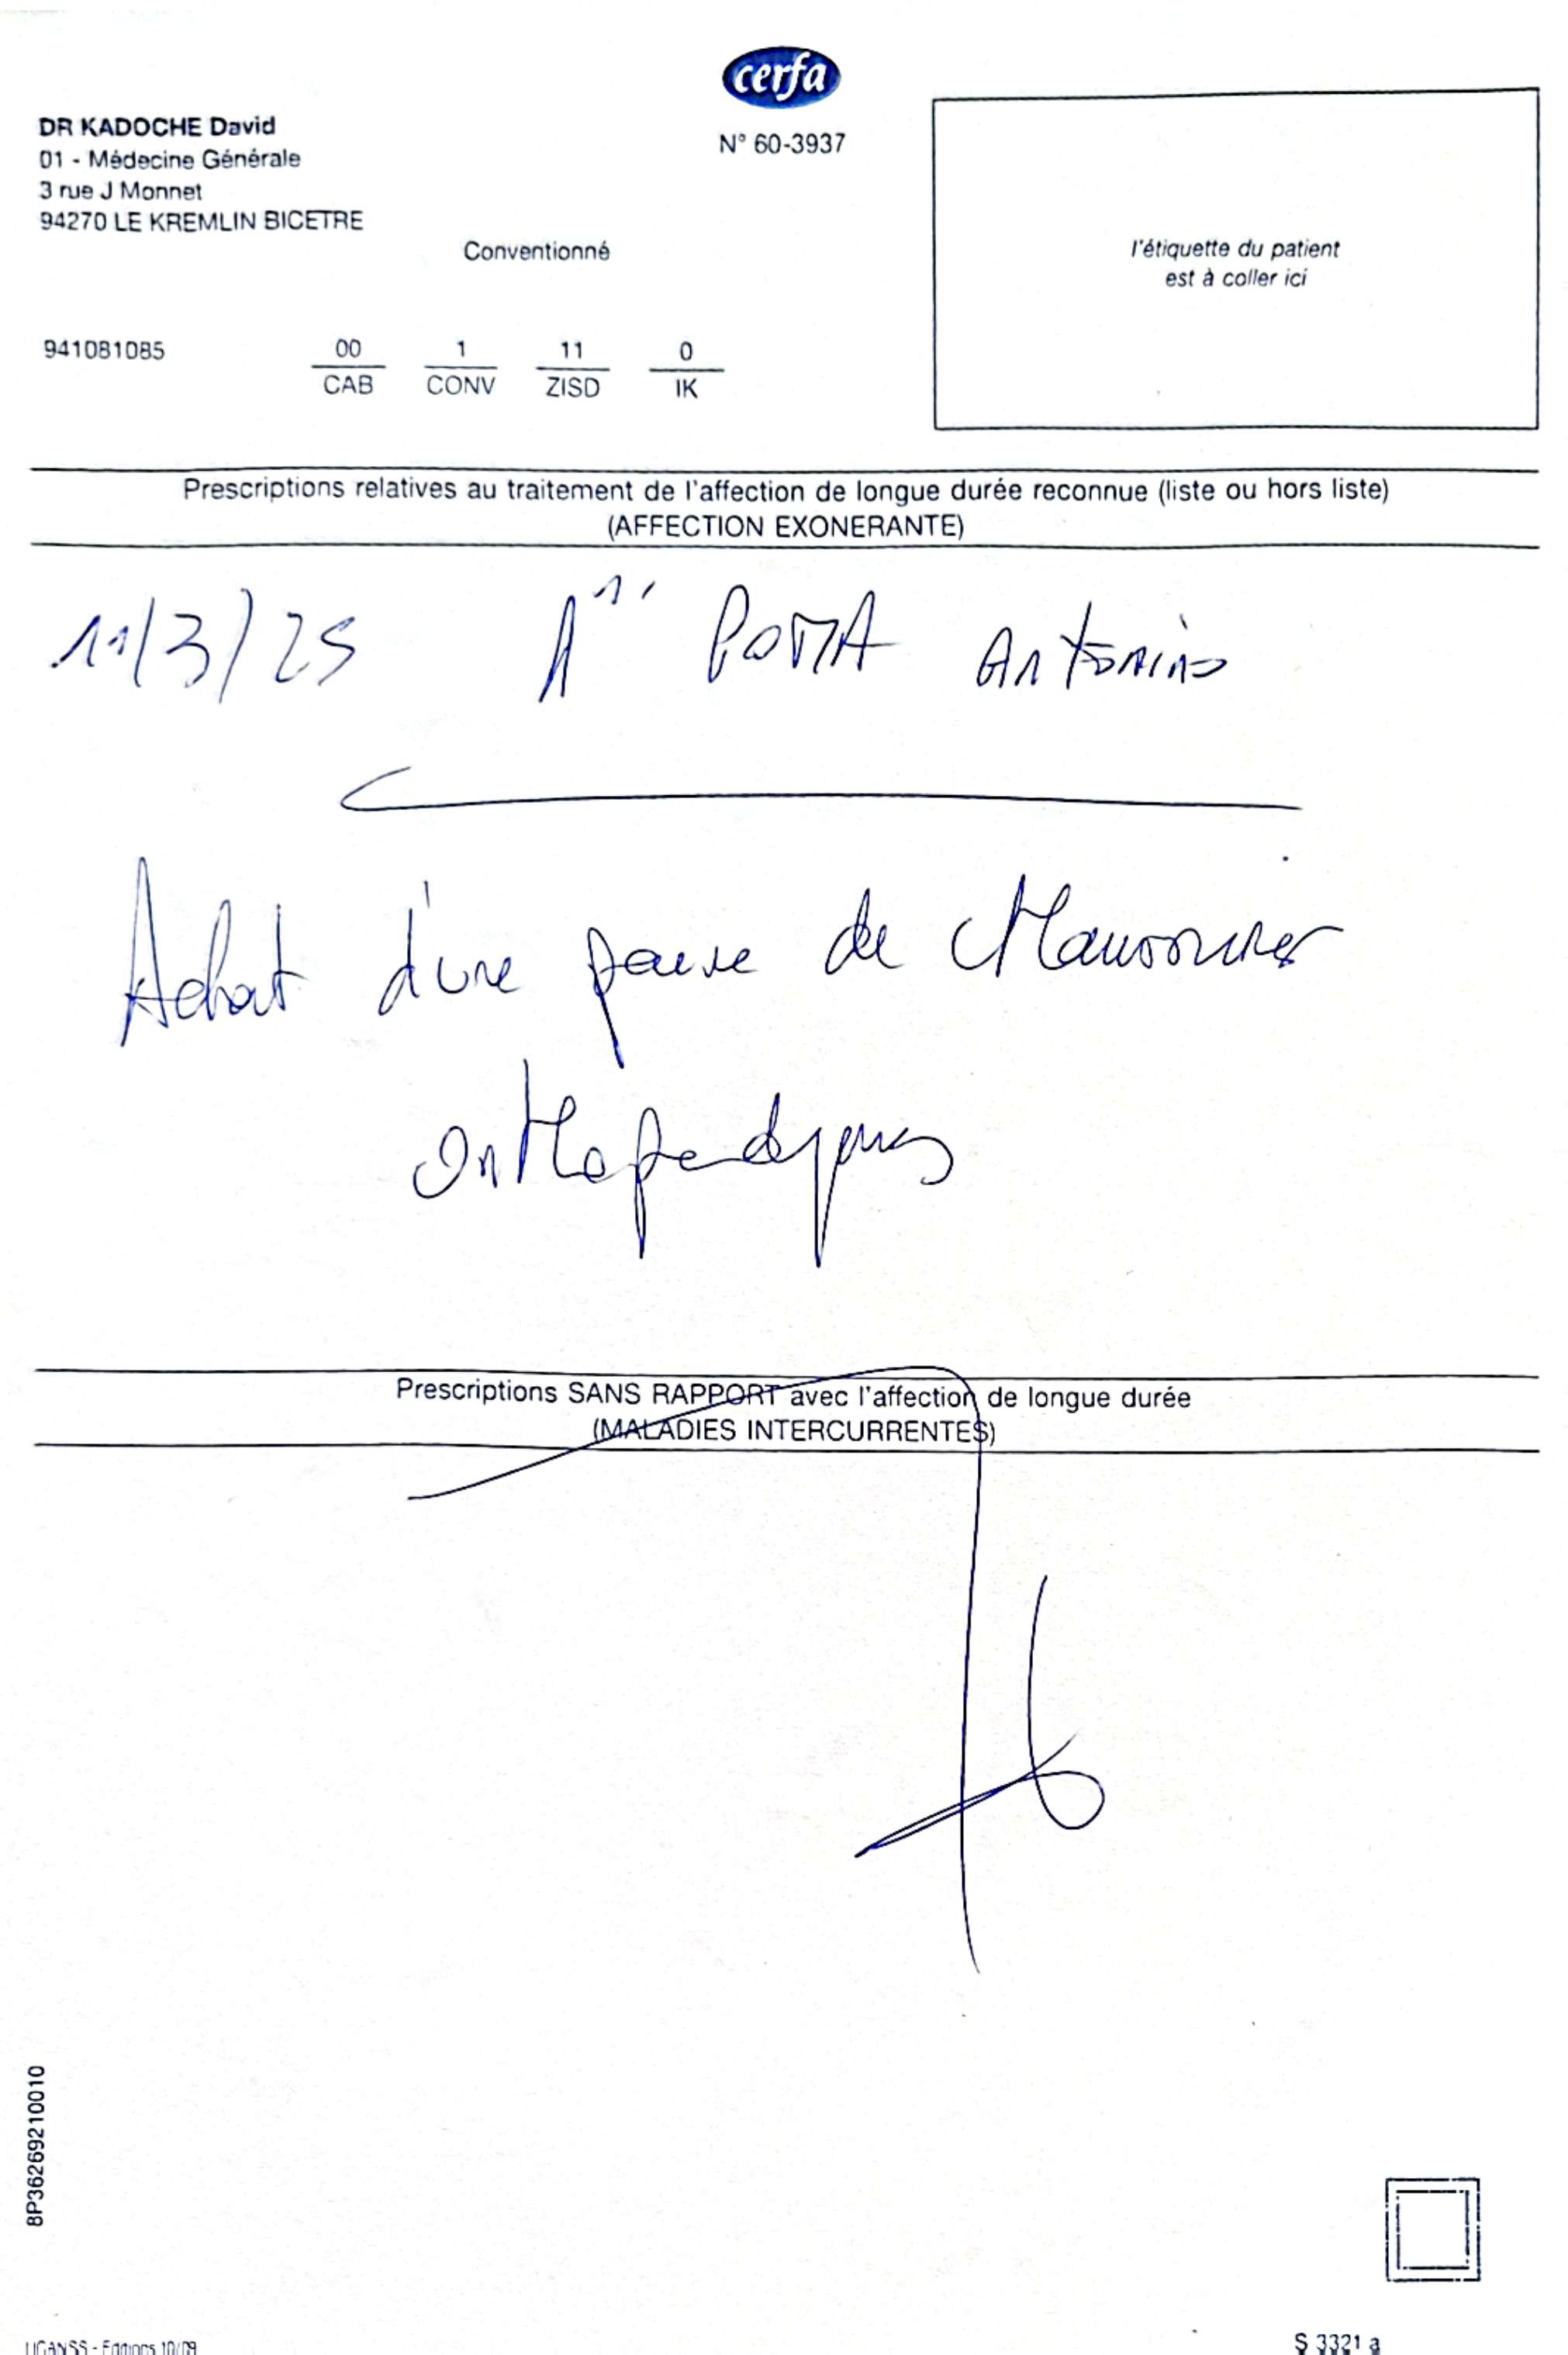 cerfa
N° 60-3937
DR KADOCHE David
01 - Médecine Générale
3 rue J Monnet
94270 LE KREMLIN BICETRE
Conventionné
l'étiquette du patient
est à coller ici
941081085 00 1 11 0
CAB CONV ZISD IK
Prescriptions relatives au traitement de l'affection de longue durée reconnue (liste ou hors liste)
(AFFECTION EXONERANTE)
11/3/25 POMA Antonino
Achat d'une paire de
Prescriptions SANS RAPPORT avec l'affection de longue durée
(MALADIES INTERCURRENTES)
8P36269210010
UCANSS - Editions 10/09
S 3321 a